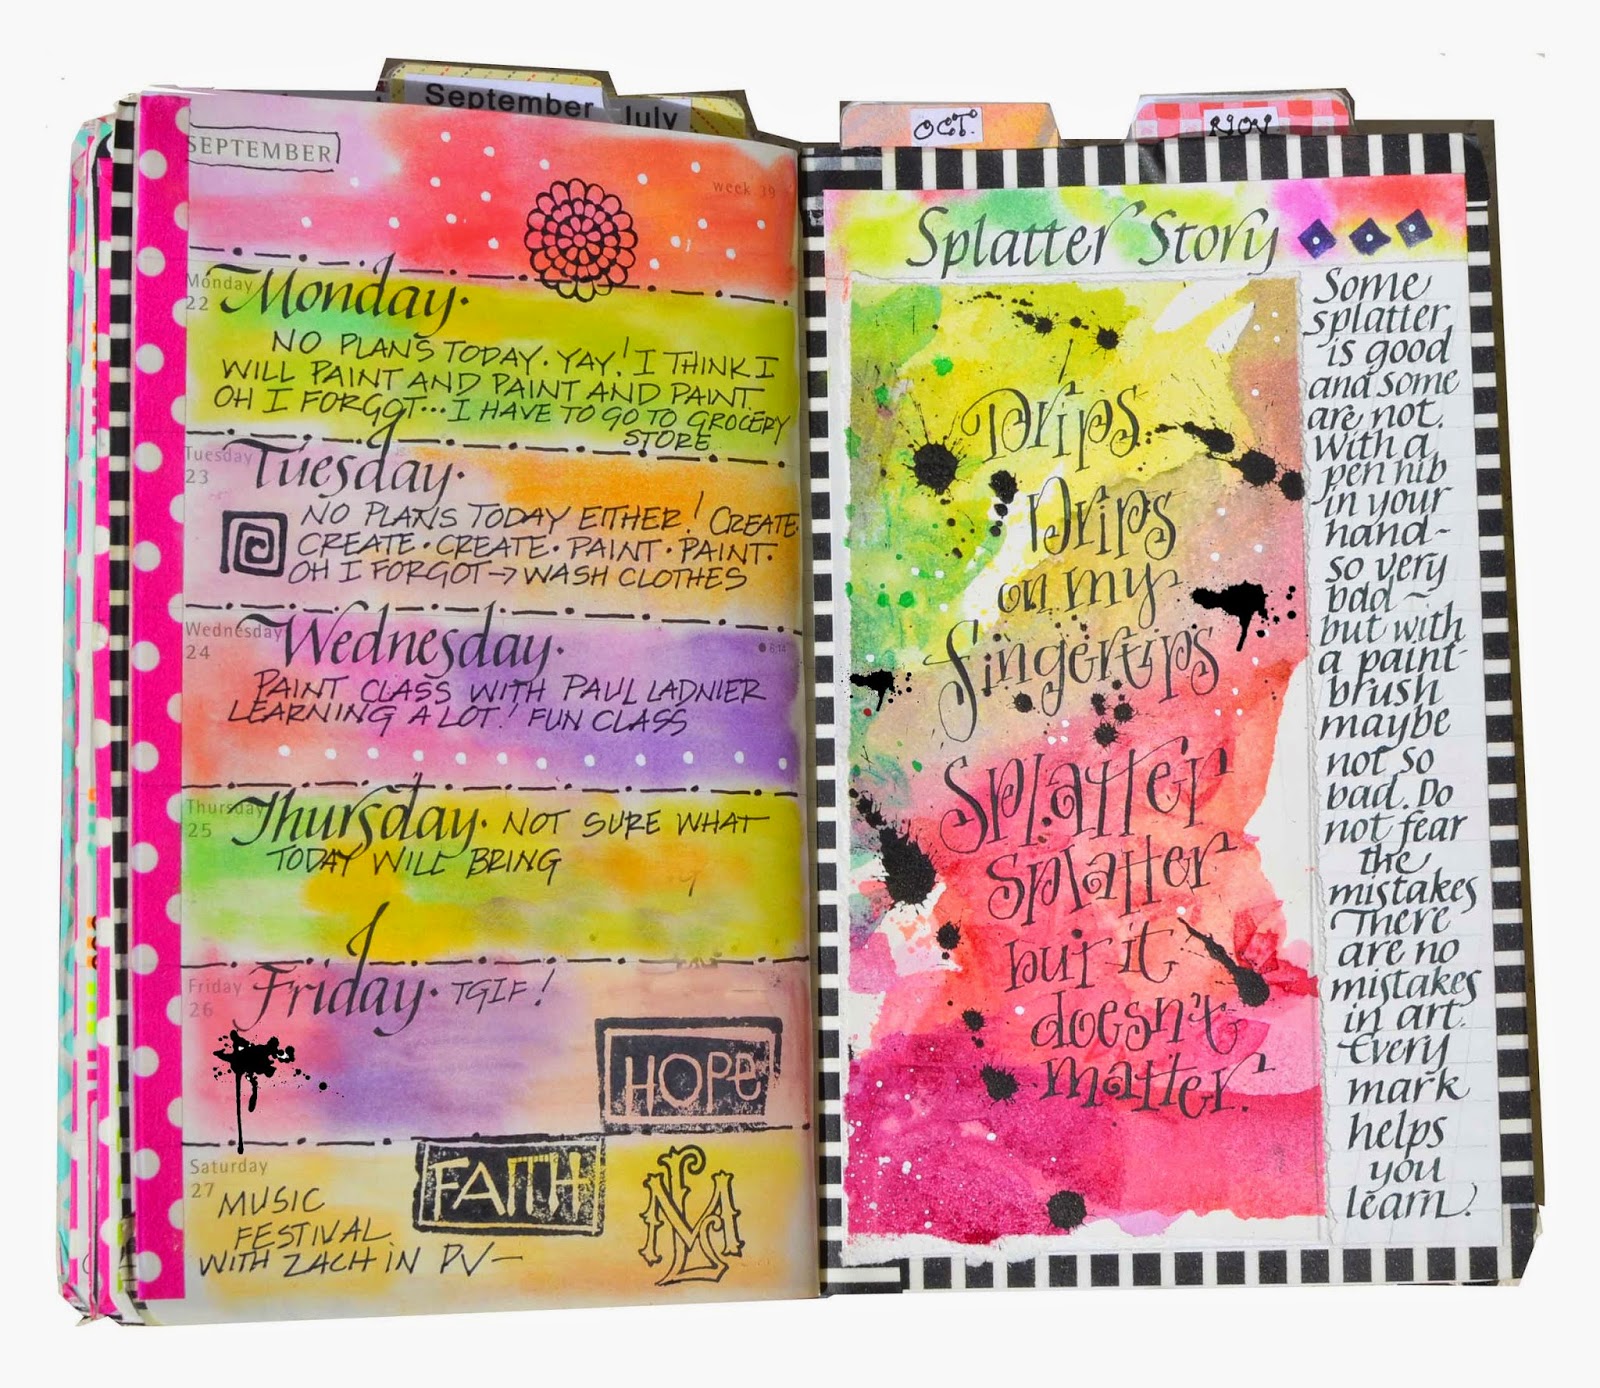 September
July
OCT.
NOV
SEPTEMBER
week 39
Monday
22
Monday.
NO PLANS TODAY. YAY! I THINK I
WILL PAINT AND PAINT AND PAINT.
OH I FORGOT...I HAVE TO GO TO GROCERY
STORE
Tuesday
23
Tuesday.
NO PLANS TODAY EITHER! CREATE.
CREATE. CREATE. PAINT. PAINT.
OH I FORGOT → WASH CLOTHES
Wednesday
24
Wednesday.
6:14
PAINT CLASS WITH PAUL LADNIER
LEARNING A LOT! FUN CLASS
Thursday
25
Thursday. NOT SURE WHAT
TODAY WILL BRING
Friday
26
Friday. TGIF!
HOPE
Saturday
27
FAITH
MUSIC
FESTIVAL
WITH ZACH IN PV-
Splatter Story
Drips.
Drips
on my
fingertips
Splatter
Splatter
but it
doesn't
matter.
Some
splatter
is good
and some
are not.
With a
pen nib
in your
hand-
so very
bad-
but with
a paint-
brush
maybe
not so
bad. Do
not fear
the
mistakes
There
are no
mistakes
in art.
Every
mark
helps
you
learn.